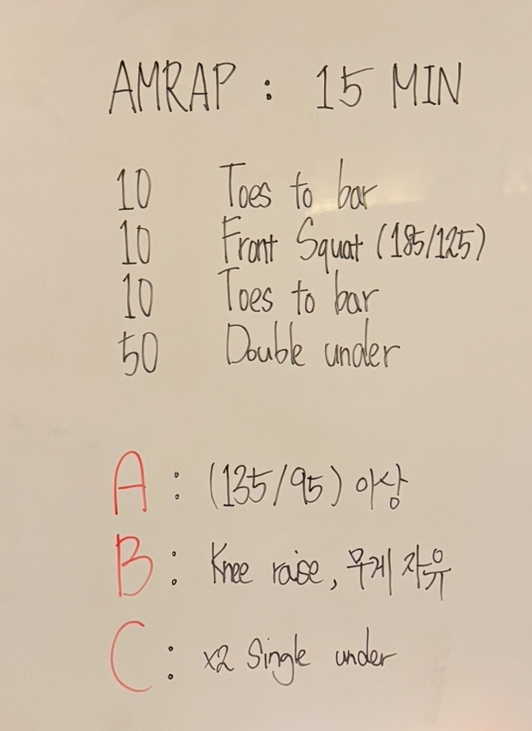 AMRAP : 15 MIN
10 Toes to bar
10 Front Squat (185/125)
10 Toes to bar
50 Double under
A : (135/95) 이상
B : Knee raise, 무게 자유
C : x2 Single under